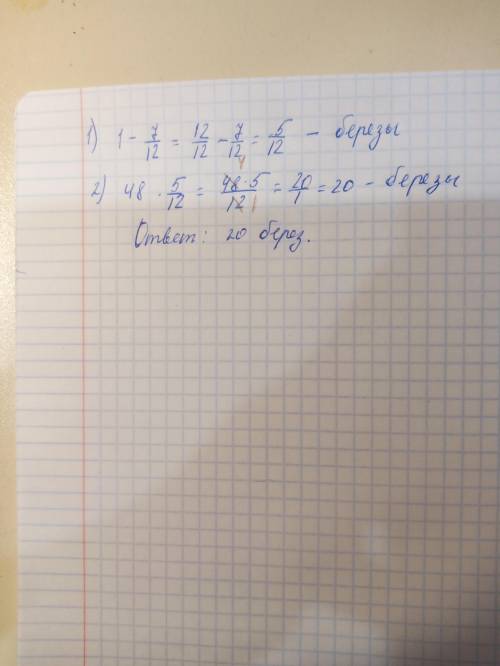 1) 1 - 7/12 = 12/12 - 7/12 = 5/12 - березы
2) 48 · 5/12 = 48·5/12 = 20/1 = 20 - березы
Ответ: 20 берез.